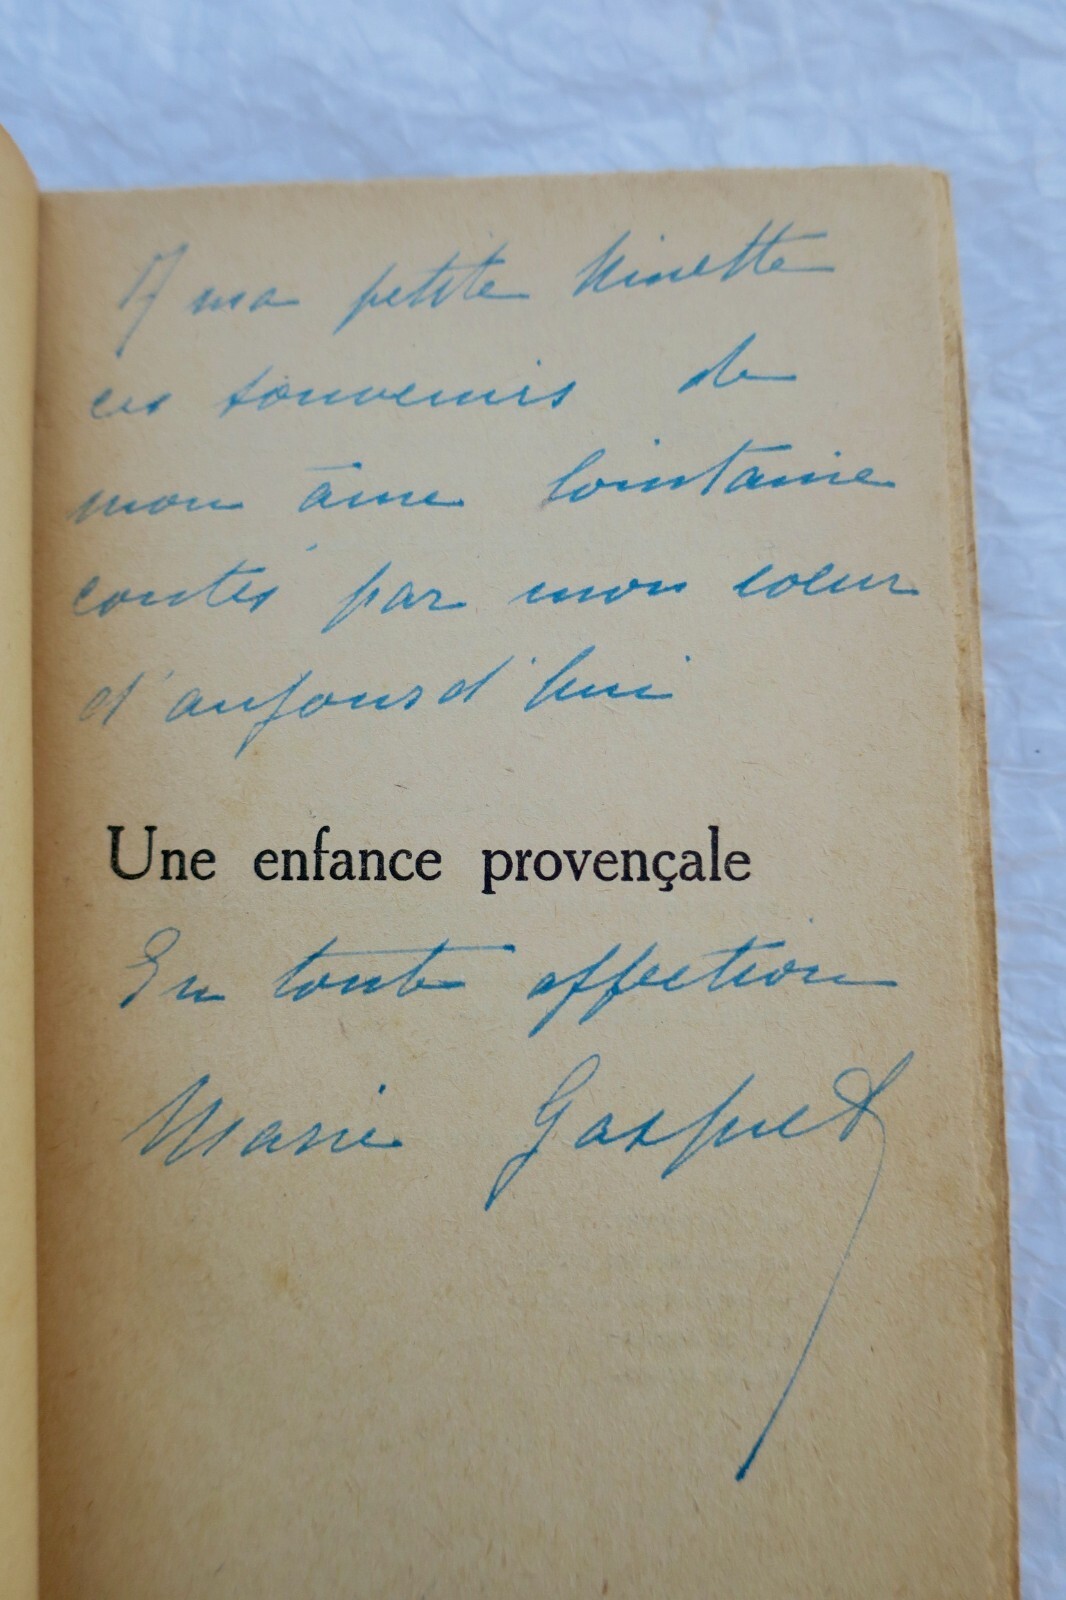 A ma petite Ninette
ces souvenirs de
mon âme lointaine
contés par mon cœur
d'aujourd'hui
Une enfance provençale
En toute affection
Marie Gasquet